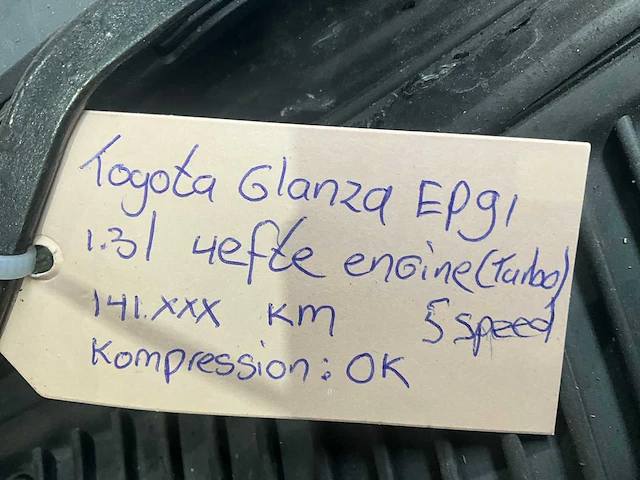 Toyota Glanza EP91
1.3l 4efte engine (Turbo)
141.XXX KM 5 speed
Kompression: OK